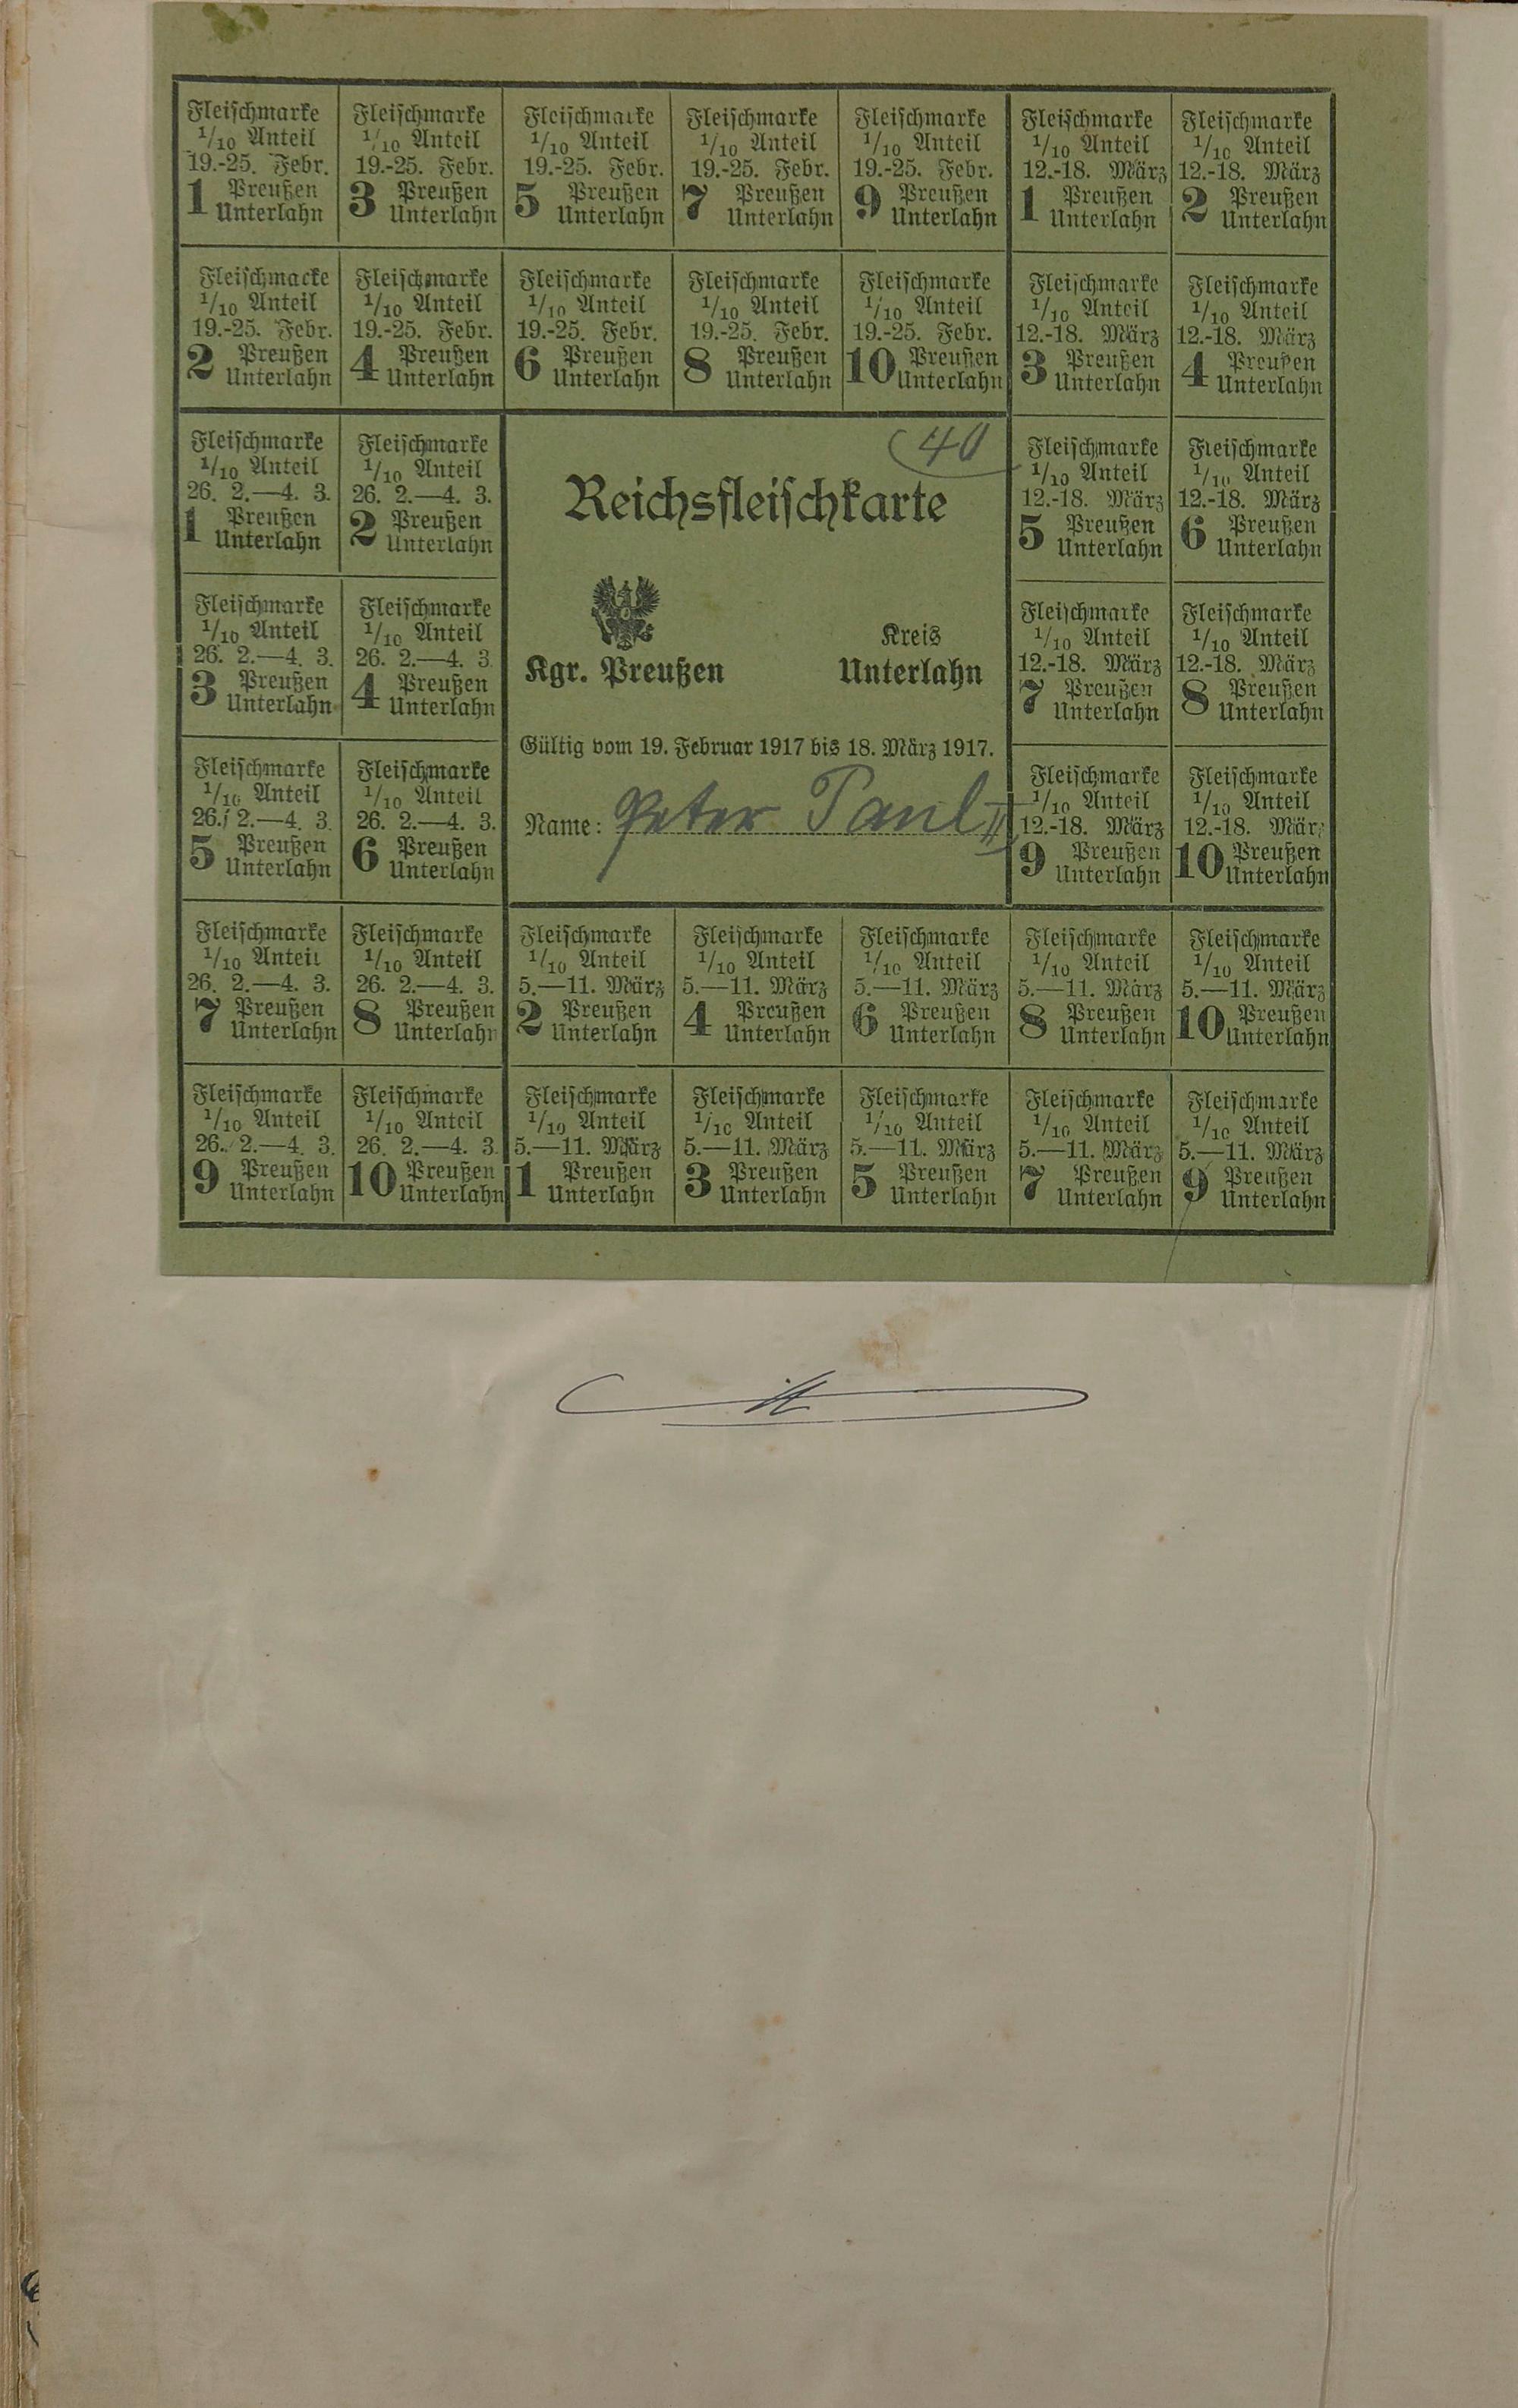 Fleischmarke
1/10 Anteil
19.-25. Febr.
1 Preußen
Unterlahn
Fleischmarke
1/10 Anteil
19.-25. Febr.
3 Preußen
Unterlahn
Fleischmarke
1/10 Anteil
19.-25. Febr.
5 Preußen
Unterlahn
Fleischmarke
1/10 Anteil
19.-25. Febr.
7 Preußen
Unterlahn
Fleischmarke
1/10 Anteil
19.-25. Febr.
9 Preußen
Unterlahn
Fleischmarke
1/10 Anteil
12.-18. März
1 Preußen
Unterlahn
Fleischmarke
1/10 Anteil
12.-18. März
2 Preußen
Unterlahn
Fleischmarke
1/10 Anteil
19.-25. Febr.
2 Preußen
Unterlahn
Fleischmarke
1/10 Anteil
19.-25. Febr.
4 Preußen
Unterlahn
Fleischmarke
1/10 Anteil
19.-25. Febr.
6 Preußen
Unterlahn
Fleischmarke
1/10 Anteil
19.-25. Febr.
8 Preußen
Unterlahn
Fleischmarke
1/10 Anteil
19.-25. Febr.
10 Preußen
Unterlahn
Fleischmarke
1/10 Anteil
12.-18. März
3 Preußen
Unterlahn
Fleischmarke
1/10 Anteil
12.-18. März
4 Preußen
Unterlahn
Fleischmarke
1/10 Anteil
26. 2.—4. 3.
1 Preußen
Unterlahn
Fleischmarke
1/10 Anteil
26. 2.—4. 3.
2 Preußen
Unterlahn
Fleischmarke
1/10 Anteil
26. 2.—4. 3.
3 Preußen
Unterlahn
Fleischmarke
1/10 Anteil
26. 2.—4. 3.
4 Preußen
Unterlahn
Fleischmarke
1/10 Anteil
26. 2.—4. 3.
5 Preußen
Unterlahn
Fleischmarke
1/10 Anteil
26. 2.—4. 3.
6 Preußen
Unterlahn
40
Reichsfleischkarte
Kreis
Kgr. Preußen Unterlahn
Gültig vom 19. Februar 1917 bis 18. März 1917.
Name: Peter Paul II
Fleischmarke
1/10 Anteil
12.-18. März
5 Preußen
Unterlahn
Fleischmarke
1/10 Anteil
12.-18. März
6 Preußen
Unterlahn
Fleischmarke
1/10 Anteil
12.-18. März
7 Preußen
Unterlahn
Fleischmarke
1/10 Anteil
12.-18. März
8 Preußen
Unterlahn
Fleischmarke
1/10 Anteil
12.-18. März
9 Preußen
Unterlahn
Fleischmarke
1/10 Anteil
12.-18. März
10 Preußen
Unterlahn
Fleischmarke
1/10 Anteil
26. 2.—4. 3.
7 Preußen
Unterlahn
Fleischmarke
1/10 Anteil
26. 2.—4. 3.
8 Preußen
Unterlahn
Fleischmarke
1/10 Anteil
5.—11. März
2 Preußen
Unterlahn
Fleischmarke
1/10 Anteil
5.—11. März
4 Preußen
Unterlahn
Fleischmarke
1/10 Anteil
5.—11. März
6 Preußen
Unterlahn
Fleischmarke
1/10 Anteil
5.—11. März
8 Preußen
Unterlahn
Fleischmarke
1/10 Anteil
5.—11. März
10 Preußen
Unterlahn
Fleischmarke
1/10 Anteil
26. 2.—4. 3.
9 Preußen
Unterlahn
Fleischmarke
1/10 Anteil
26. 2.—4. 3.
10 Preußen
Unterlahn
Fleischmarke
1/10 Anteil
5.—11. März
1 Preußen
Unterlahn
Fleischmarke
1/10 Anteil
5.—11. März
3 Preußen
Unterlahn
Fleischmarke
1/10 Anteil
5.—11. März
5 Preußen
Unterlahn
Fleischmarke
1/10 Anteil
5.—11. März
7 Preußen
Unterlahn
Fleischmarke
1/10 Anteil
5.—11. März
9 Preußen
Unterlahn